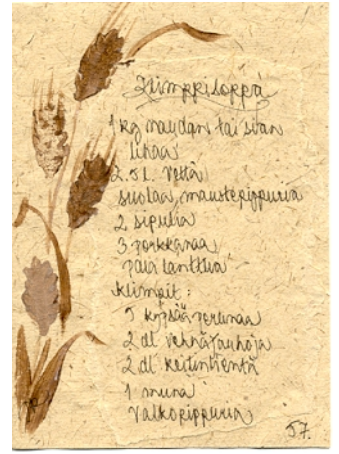 Klimppisoppa
1 kg naudan tai sian
lihaa
2.5 l. vettä
suolaa, maustepippuria
2 sipulia
3 porkkanaa
pala lanttua
klimpit:
5 kypsää perunaa
2 dl vehnäjauhoja
2 dl keitinlientä
1 muna
valkopippuria